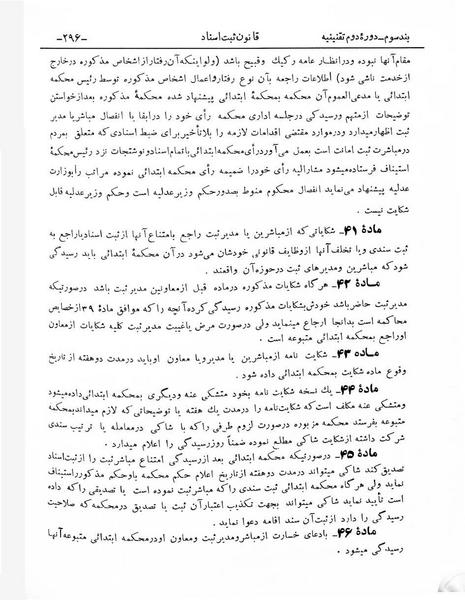 بند سوم - دورۀ دوم تقنینیه قانون ثبت اسناد -۲۹۶-
مقام آنها نبوده ودر انظار عامه رکیك وقبیح باشد (ولو اینکه آن رفتار از اشخاص مذکوره در خارج
از خدمت ناشی شود) اطلاعات راجعه بآن نوع رفتار و اعمال اشخاص مذکوره توسط رئیس محکمه
ابتدائی یا مدعی العموم آن محکمه بمحکمه ابتدائی پیشنهاد شده محکمه مذکوره بعد از خواستن
توضیحات از متهم ورسیدگی در جلسه اداری محکمه رأی خود را در ابقا یا انفصال مباشر یا مدیر
ثبت اظهار میدارد و در موارد مقتضی اقدامات لازمه را بلا تأخیر برای ضبط اسنادی که متعلق بمردم
در مباشرت ثبت امانت است بعمل می آورد رأی محکمه ابتدائی با تمام اسناد و نوشتجات نزد رئیس محکمه
استیناف فرستاده میشود مشارالیه رأی خود را ضمیمه رأی محکمه ابتدائی نموده مراتب را بوزارت
عدلیه پیشنهاد می نماید انفصال محکوم منوط بصدور حکم وزیر عدلیه است وحکم وزیر عدلیه قابل
شکایت نیست .
مادۀ ۴۱- شکایاتی که از مباشرین یا مدیر ثبت راجع بامتناع آنها از ثبت اسناد یا راجع به
ثبت سندی ویا تخلف آنها از وظایف قانونی خودشان می شود در آن محکمه ابتدائی باید رسیدگی
شود که مباشرین ومدیرهای ثبت در حوزه آن واقعند .
مـادۀ ۴۲- هرگاه شکایات مذکوره در ماده قبل از معاونین مدیر ثبت باشد در صورتیکه
مدیر ثبت حاضر باشد خودش بشکایات مذکوره رسیدگی کرده آنچه را که موافق مادۀ ۳۹ از خصایص
محاکمه است بدانجا ارجاع مینماید ولی در صورت مرض یا غیبت مدیر ثبت کلیه شکایات از معاون
او راجع بمحکمه ابتدائی متبوعه است .
مـاده ۴۳- شکایت نامه از مباشرین یا مدیر ویا معاون او باید در مدت دو هفته از تاریخ
وقوع ماده شکایت بمحکمه ابتدائی داده شود .
مادۀ ۴۴- یك نسخه شکایت نامه بخود متشکی عنه ودیگری بمحکمه ابتدائی داده میشود
ومتشکی عنه مکلف است که شکایت نامه را در مدت یك هفته با توضیحاتی که لازم میداند بمحکمه
متبوعه بفرستد محکمه مزبوره در صورت لزوم طرفی را که با شاکی در معامله یا ترتیب سندی
شرکت داشته از شکایت شاکی مطلع نموده ضمناً روز رسیدگی را اعلام میدارد .
مادۀ ۴۵- در صورتیکه محکمه ابتدائی بعد از رسیدگی امتناع مباشر ثبت را از ثبت اسناد
تصدیق کند شاکی میتواند در مدت دو هفته از تاریخ اعلام حکم محکمه با و حکم مذکور را استیناف
نماید ولی هرگاه محکمه ابتدائی ثبت سندی را که مباشر ثبت نموده است یا تصدیقی را که داده
است تأیید نماید شاکی میتواند بجهت تکذیب اعتبار آن ثبت یا تصدیق در محکمه که صلاحیت
رسیدگی را دارد از ثبت آن سند اقامه دعوا نماید .
مادۀ ۴۶- بادعای خسارت از مباشر ومدیر ثبت ومعاون او در محکمه ابتدائی متبوعه آنها
رسیدگی میشود .